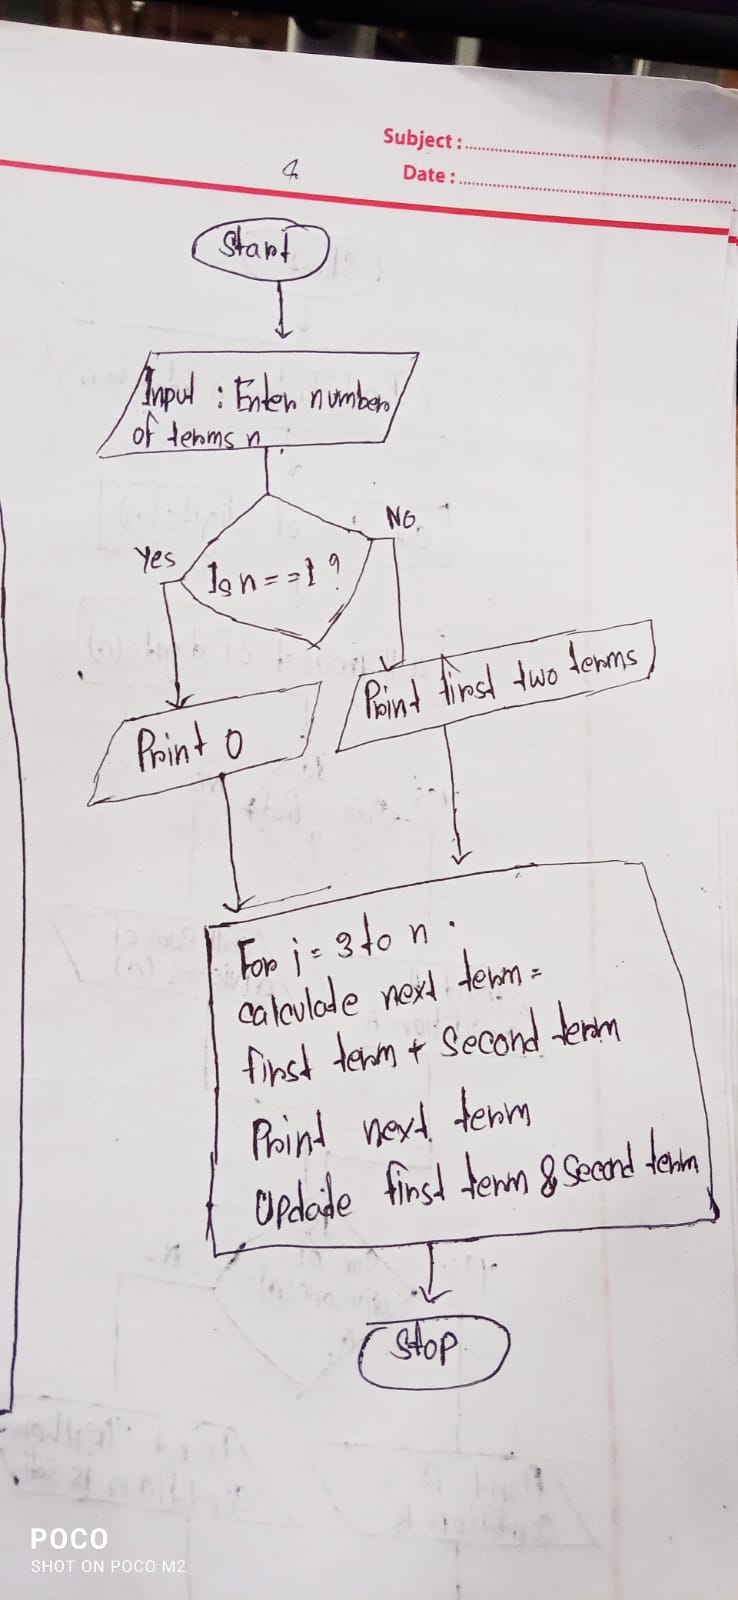 Subject :
Date :
Start
Input : Enter number
of terms n
Yes
No
Is n == 1 ?
Print 0
Print first two terms
For i = 3 to n .
calculate next term =
first term + Second term
Print next term
Update first term & Second term
Stop
POCO
SHOT ON POCO M2